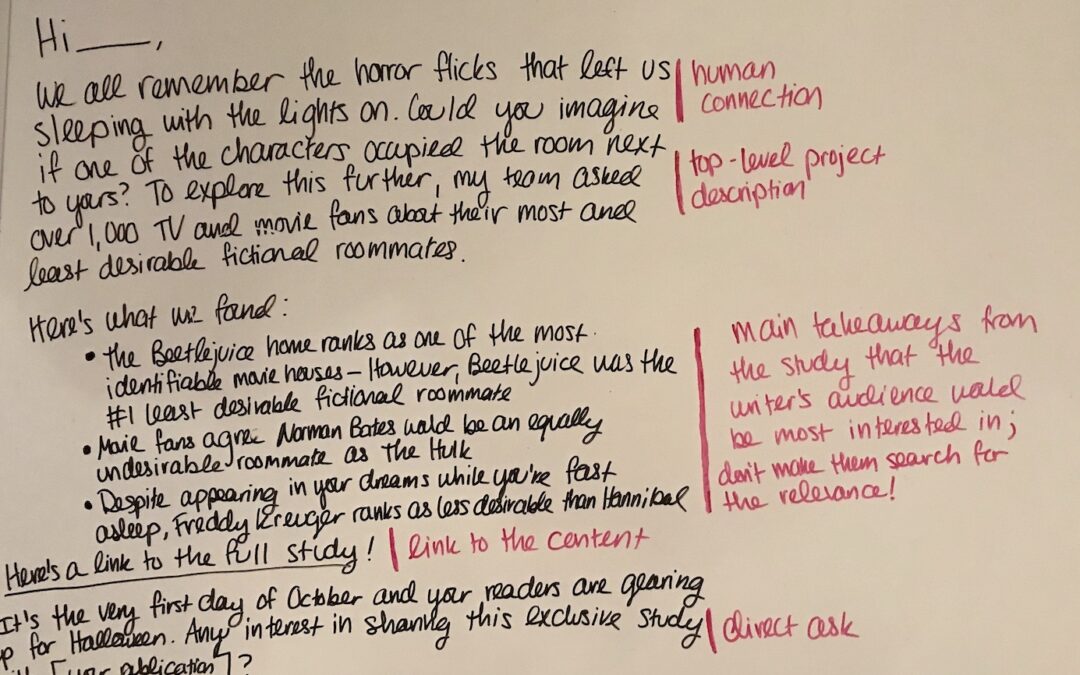 Hi ____,
We all remember the horror flicks that left us
human
connection
sleeping with the lights on. Could you imagine
if one of the characters occupied the room next
to yours? To explore this further, my team asked
top-level project
description
over 1,000 TV and movie fans about their most and
least desirable fictional roommates.
Here's what we found:
• the Beetlejuice home ranks as one of the most
identifiable movie houses – However, Beetlejuice was the
#1 least desirable fictional roommate
• Movie fans agree Norman Bates would be an equally
undesirable roommate as the Hulk
• Despite appearing in your dreams while you're fast
asleep, Freddy Kreuger ranks as less desirable than Hannibal
main takeaways from
the study that the
writer's audience would
be most interested in;
don't make them search for
the relevance!
Here's a link to the full study!
link to the content
It's the very first day of October and your readers are gearing
p for Halloween. Any interest in sharing this exclusive study
direct ask
[your publication]?